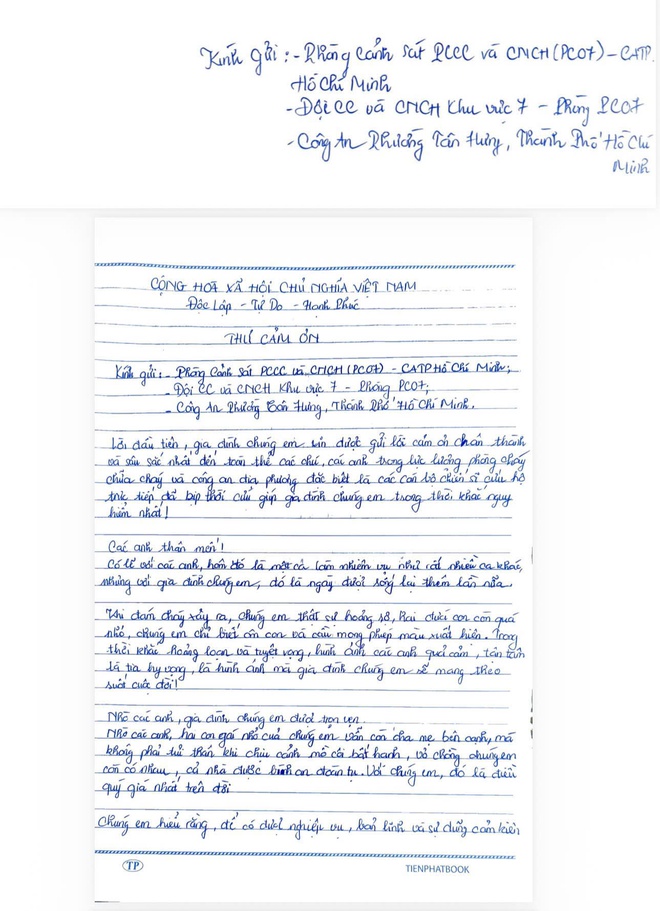 Kính gửi: - Phòng Cảnh sát PCCC và CNCH (PC07) - CATP.
Hồ Chí Minh
- Đội CC và CNCH Khu vực 7 - Phòng PC07
- Công An Phường Tân Hưng, Thành Phố Hồ Chí
Minh
CỘNG HOÀ XÃ HỘI CHỦ NGHĨA VIỆT NAM
Độc Lập - Tự Do - Hạnh Phúc
THƯ CẢM ƠN
Kính gửi: - Phòng Cảnh sát PCCC và CNCH (PC07) - CATP Hồ Chí Minh;
- Đội CC và CNCH Khu vực 7 - Phòng PC07;
- Công An Phường Tân Hưng, Thành Phố Hồ Chí Minh.
Lời đầu tiên, gia đình chúng em xin được gửi lời cảm ơn chân thành
và sâu sắc nhất đến toàn thể các chú, các anh trong lực lượng phòng cháy
chữa cháy và công an địa phương đặc biệt là các cán bộ chiến sĩ cứu hộ
trực tiếp đã kịp thời cứu giúp gia đình chúng em trong thời khắc nguy
hiểm nhất!
Các anh thân mến!
Có lẽ với các anh, hôm đó là một ca làm nhiệm vụ như rất nhiều ca khác,
nhưng với gia đình chúng em, đó là ngày được sống lại thêm lần nữa.
Khi đám cháy xảy ra, chúng em thật sự hoảng sợ, hai đứa con còn quá
nhỏ, chúng em chỉ biết ôm con và cầu mong phép màu xuất hiện. Trong
thời khắc hoảng loạn và tuyệt vọng, hình ảnh các anh quả cảm, tận tâm
là tia hy vọng, là hình ảnh mà gia đình chúng em sẽ mang theo
suốt cuộc đời!
Nhờ các anh, gia đình chúng em được trọn vẹn.
Nhờ các anh, hai con gái nhỏ của chúng em vẫn còn cha mẹ bên cạnh, mà
không phải tủi thân khi chịu cảnh mồ côi bất hạnh, vợ chồng chúng em
còn có nhau, cả nhà được bình an đoàn tụ. Với chúng em, đó là điều
quý giá nhất trên đời
Chúng em hiểu rằng, để có được nghiệp vụ, bản lĩnh và sự dũng cảm kiên
TP
TIENPHATBOOK